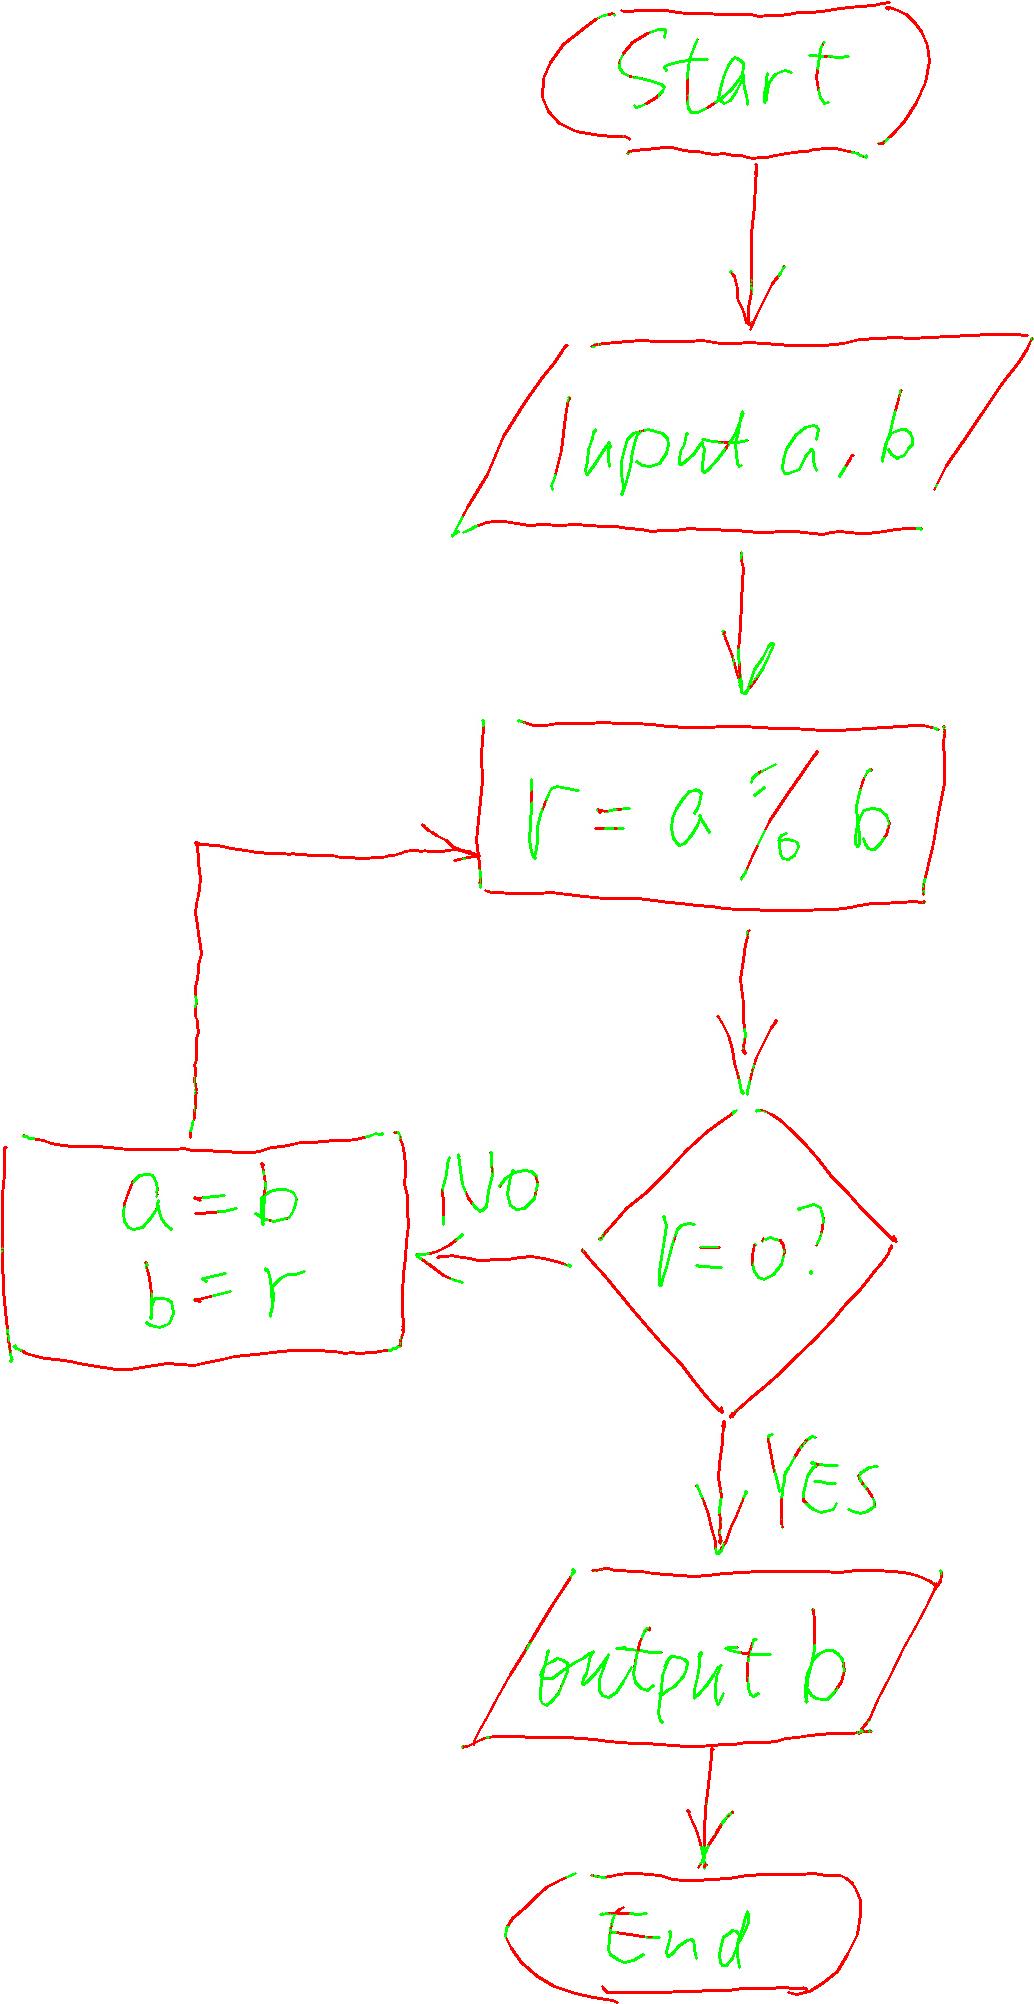 Start
Input a, b
r = a % b
NO
a = b
b = r
r = 0?
YES
output b
End